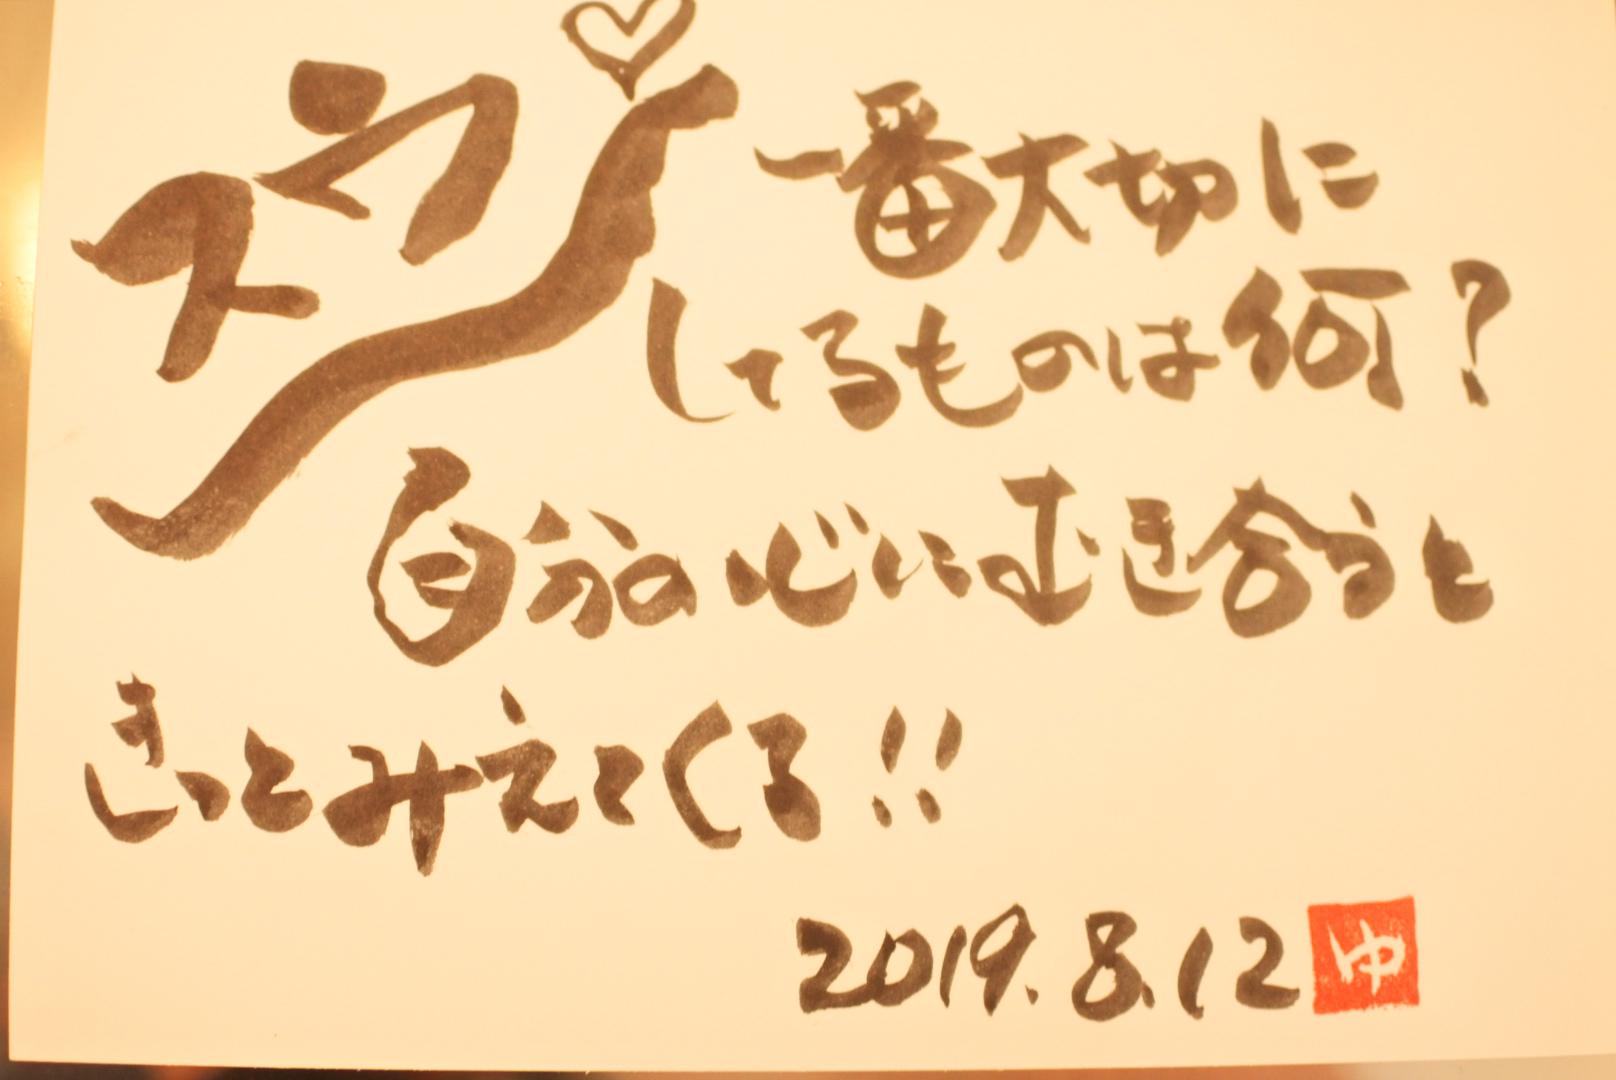 一番大切に
してるものは何?
自分の心にむき合うと
きっとみえてくる!!
2019.8.12 ゆ